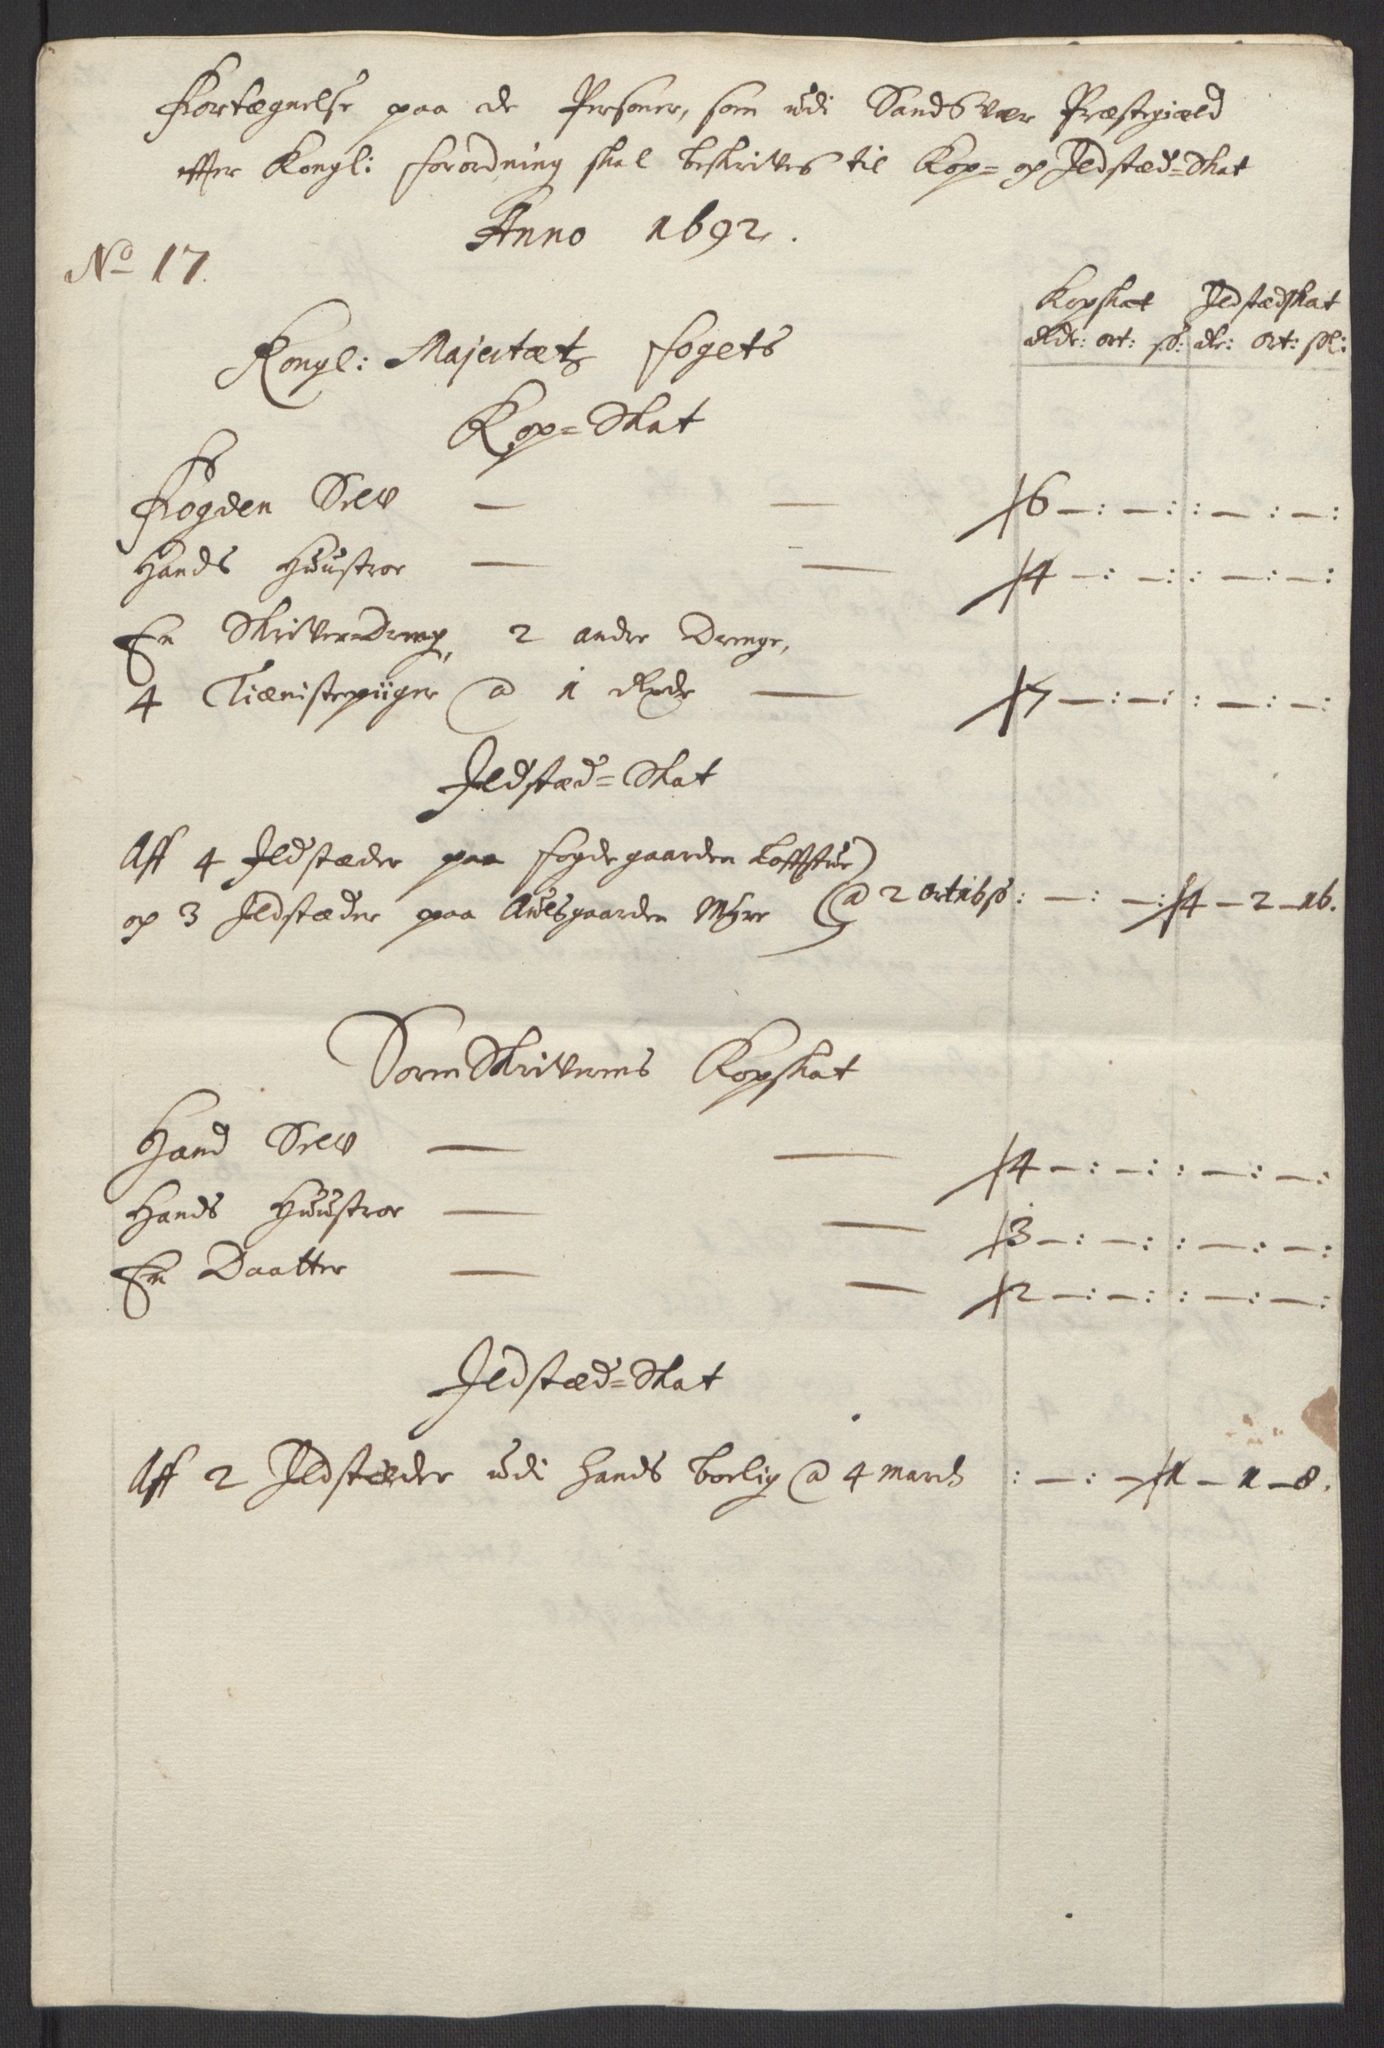 Fortægnelse paa de Personer, som udi Sandsvær Præstegiæld
effter Kongl: forordning skal beskrives til Kop= og Ildstæd=Skat
Anno 1692.
No 17.
Kopskat Ildstædskat
Rdr: ort: sk: dr: ort: sk:
Kongl: Majestæts fogets
Kop=Skat
Fogden Selv — — 6 —: —: : —: —:
Hands Huustroe — — 4 —: —: : —: —:
En Skriver=Dreng, 2 andre Drenge,
4 Tiænistepiiger @ 1 Rdr — 7 —: —: : —: —:
Ildstæd=Skat
Aff 4 Ildstæder paa fogdegaarden Loffstue
og 3 Ildstæder paa Aulsgaarden Myre @ 2 ort 16 sk : —: —: 4 — 2 — 16.
Sorenskriverens Kopskat
Hand Selv — — 4 —: —: : —: —:
Hands Huustroe — — 3 —: —: : —: —:
En Daatter — — 2 —: —: : —: —:
Ildstæd=Skat
Aff 2 Ildstæder udi hands boelig @ 4 march : —: — 1 — 1 — 8.